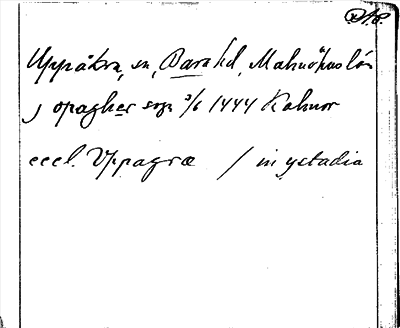 DAP.
Uppåkra, sn, Bara hd, Malmöhus län
j opagher sogn 3/6 1444 Kalmar
eccl. Vppagræ / in ystadia